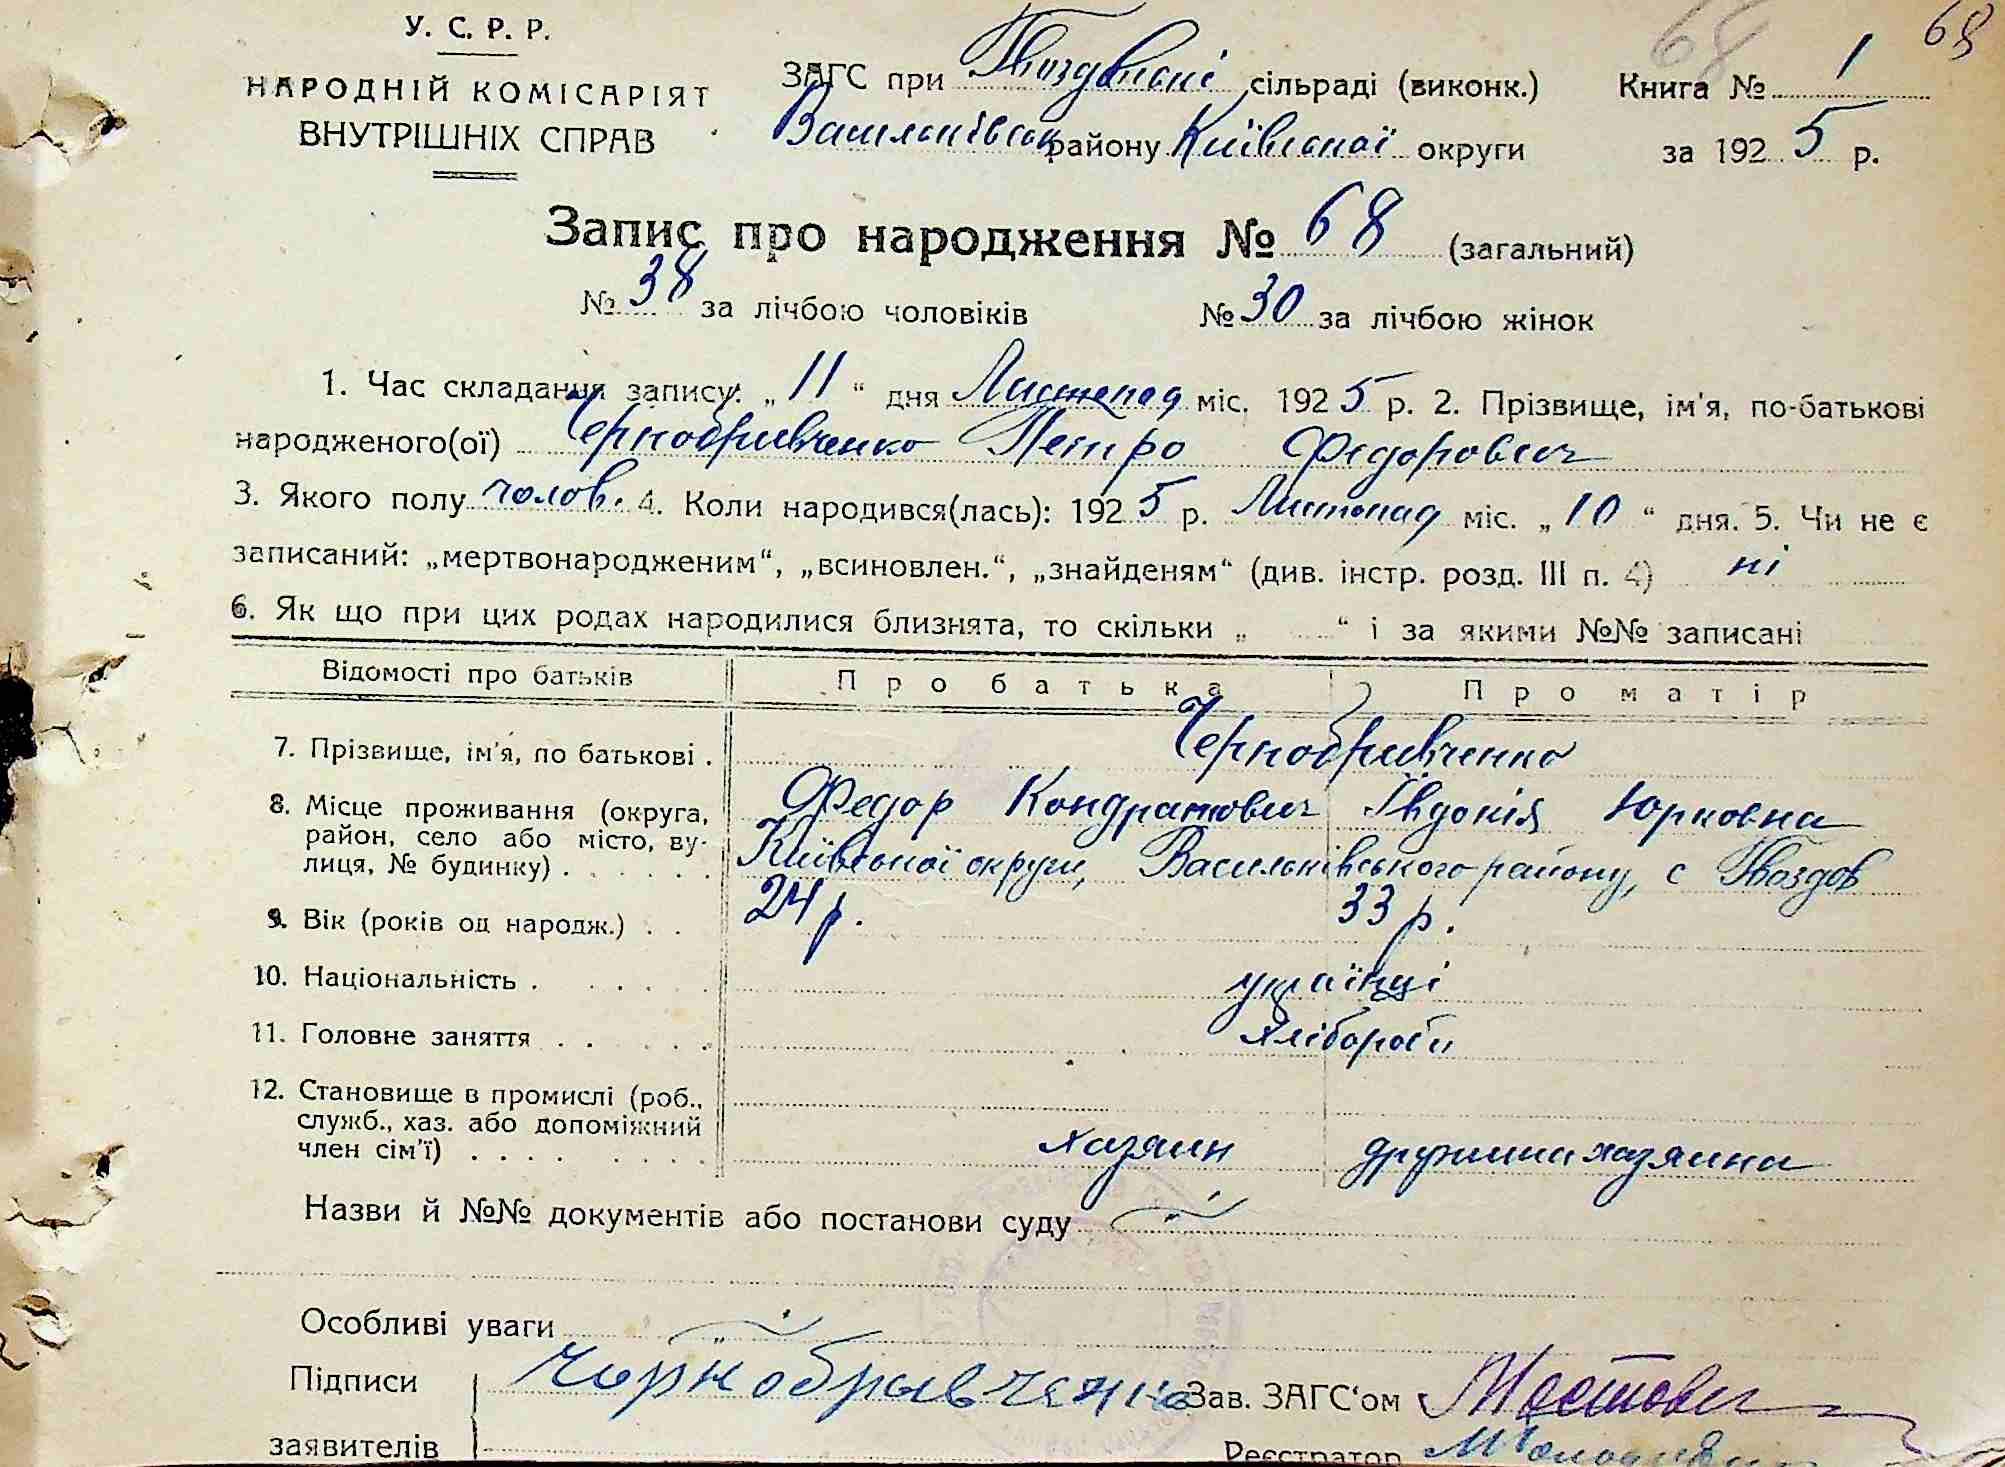 У. С. Р. Р.
НАРОДНІЙ КОМІСАРІЯТ
ВНУТРІШНІХ СПРАВ
68 68
ЗАГС при Гвоздівські сільраді (виконк.) Книга № 1
Васильківськ району Київської округи за 1925 р.
Запис про народження № 68 (загальний)
№ 38 за лічбою чоловіків № 30 за лічбою жінок
1. Час складання запису: „11“ дня Листопад міс. 1925 р. 2. Прізвище, ім'я, по-батькові
народженого(ої) Чернобривченко Петро Федорович
3. Якого полу чолов. 4. Коли народився(лась): 1925 р. Листопад міс. „10“ дня. 5. Чи не є
записаний: „мертвонародженим“, „всиновлен.“, „знайденям“ (див. інстр. розд. III п. 4) ні
6. Як що при цих родах народилися близнята, то скільки „ “ і за якими №№ записані
Відомості про батьків Про батька Про матір
7. Прізвище, ім'я, по батькові . Чернобривченко
Федор Кондратович Івдокія Юрковна
8. Місце проживання (округа, район, село або місто, вулиця, № будинку) . . . . . . Київської округи, Васильківського району, с Гвоздов
9. Вік (років од народж.) . . 24 р. 33 р.
10. Національність . . . . . . українці
11. Головне заняття . . . . . хлібороби
12. Становище в промислі (роб.,
служб., хаз. або допоміжний
член сім'ї) . . . . . . . . хазяин дружина хазяина
Назви й №№ документів або постанови суду
Особливі уваги
Підписи Чорнобривченко Зав. ЗАГС'ом
заявителів Реєстратор